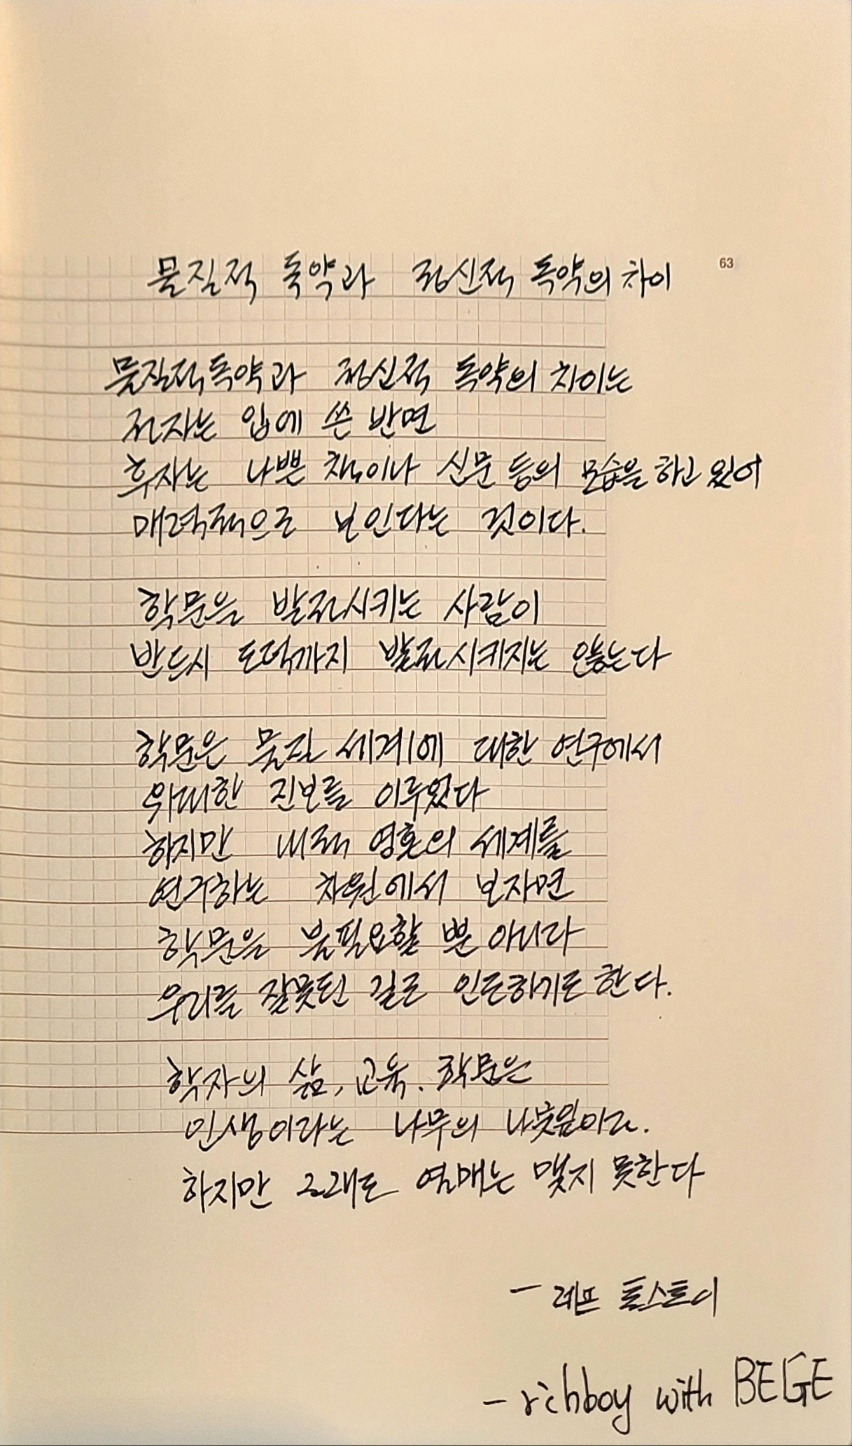 63
물질적 독약과 정신적 독약의 차이
물질적 독약과 정신적 독약의 차이는
전자는 입에 쓴 반면
후자는 나쁜 책이나 신문 등의 모습을 하고 있어
매력적으로 보인다는 것이다.
학문을 발전시키는 사람이
반드시 도덕까지 발전시키지는 않는다
학문은 물질 세계에 대한 연구에서
위대한 진보를 이루었다
하지만 내적 영혼의 세계를
연구하는 차원에서 보자면
학문은 불필요할 뿐 아니라
우리를 잘못된 길로 인도하기도 한다.
학자의 삶, 교육. 학문은
인생이라는 나무의 나뭇잎이다.
하지만 그래도 열매는 맺지 못한다
- 레프 톨스토이
- richboy with BEGE